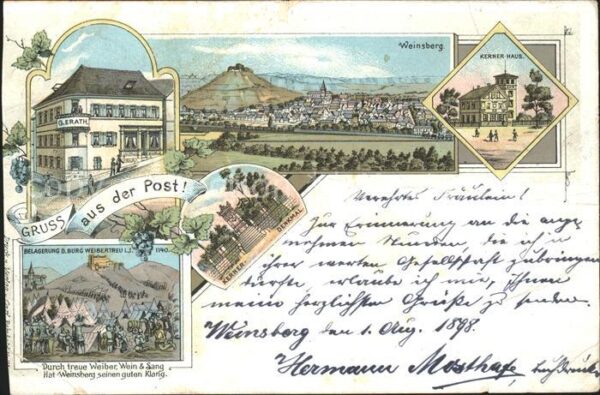 Weinsberg.
KERNER-HAUS.
G. ERATH.
GRUSS aus der Post!
KERNER-DENKMAL.
BELAGERUNG D. BURG WEIBERTREU I. J. 1140.
Durch treue Weiber, Wein & Sang
Hat Weinsberg seinen guten Klang.
Verehrtes Fräulein!
Zur Erinnerung an die ange-
nehmen Stunden, die ich in
ihrer werten Gesellschaft zubringen
durfte, erlaube ich mir, Ihnen
meine herzlichsten Grüße zu senden.
Weinsberg den 1. Aug. 1898.
Hermann Mosthafe,